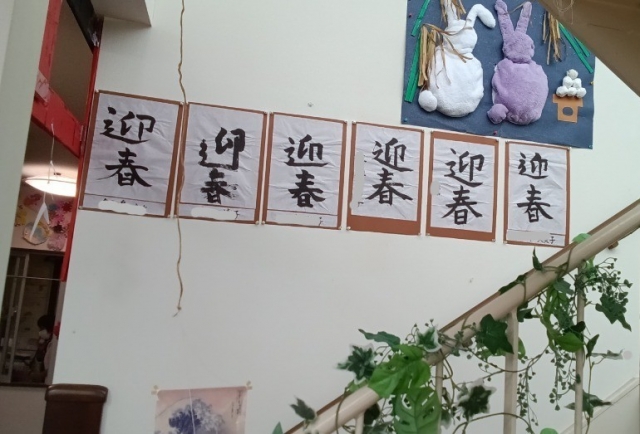 迎春
迎春
迎春
迎春
迎春
迎春